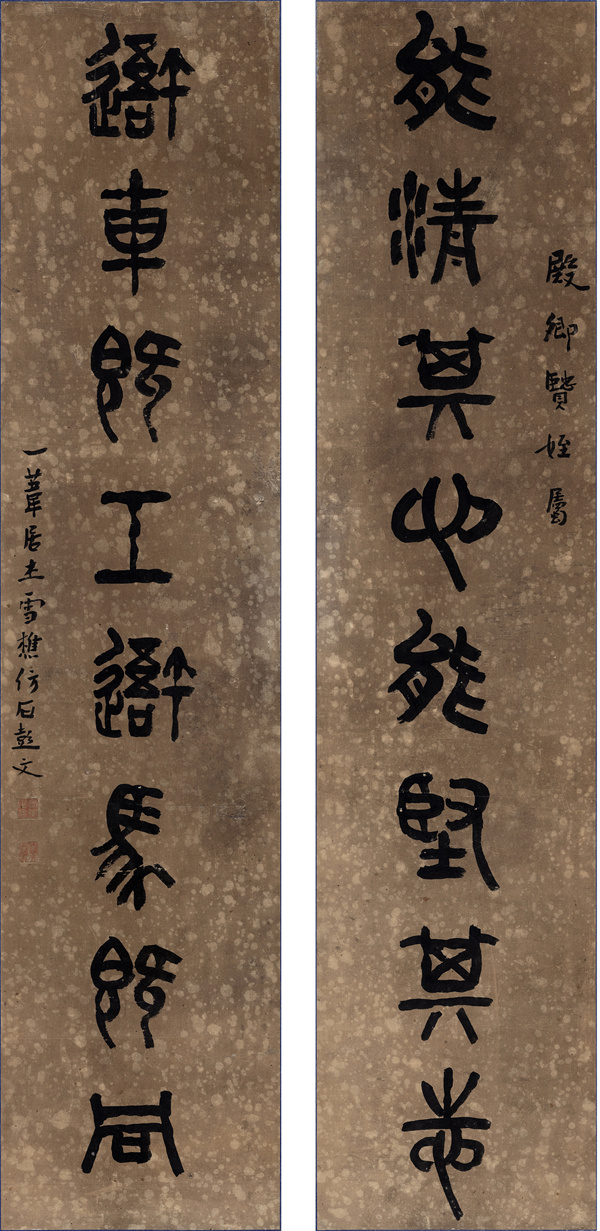 殿卿賢姪屬
能清其心能堅其志
䢒車既工䢒馬既同
一葦居士雪樵仿石鼓文